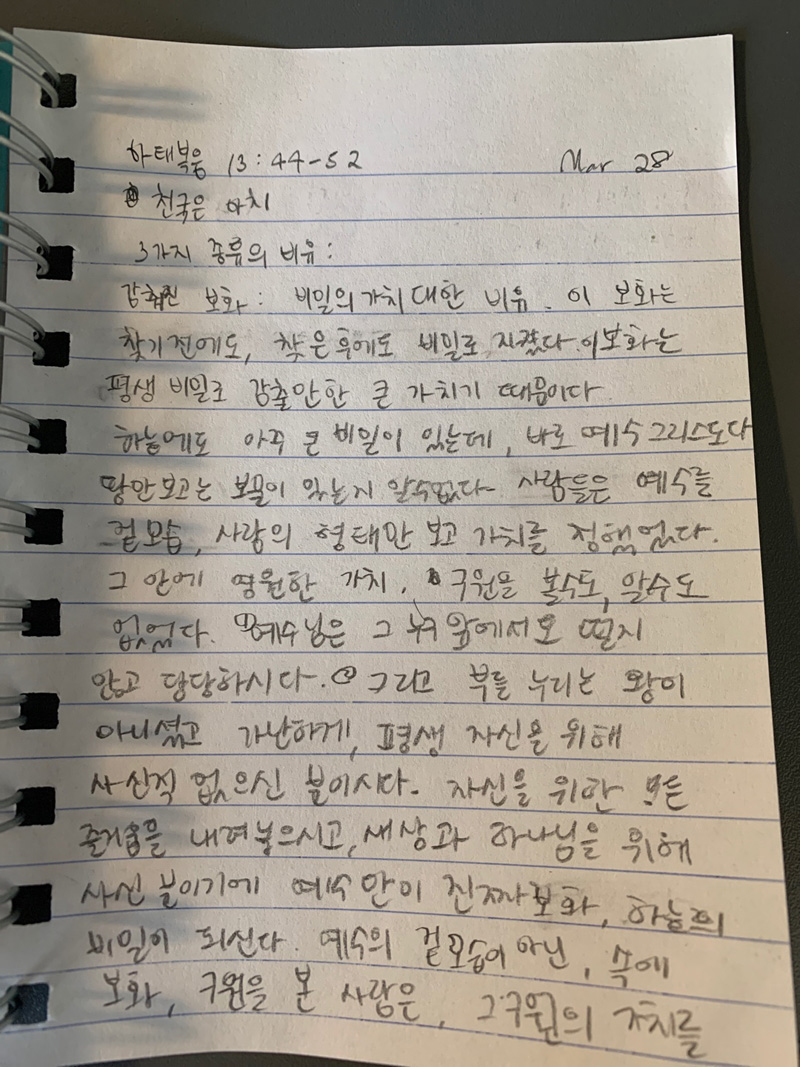 마태복음 13:44-52 Mar 28
천국은 마치
3가지 종류의 비유:
감춰진 보화: 비밀의 가치 대한 비유. 이 보화는
찾기 전에도, 찾은 후에도 비밀로 지켰다. 이 보화는
평생 비밀로 감출만한 큰 가치기 때문이다
하늘에도 아주 큰 비밀이 있는데, 바로 예수 그리스도다
땅만 보고는 보물이 있는지 알수없다. 사람들은 예수를
겉모습, 사람의 형태만 보고 가치를 정했었다.
그 안에 영원한 가치, 구원을 볼수도, 알수도
없었다. ①예수님은 그 누구 앞에서도 떨지
않고 당당하시다. ② 그리고 부를 누리는 왕이
아니셨고 가난하게, 평생 자신을 위해
사신적 없으신 분이시다. 자신을 위한 모든
즐거움을 내려놓으시고, 세상과 하나님을 위해
사신 분이기에 예수만이 진짜 보화, 하늘의
비밀이 되신다. 예수의 겉모습이 아닌, 속에
보화, 구원을 본 사람은, 그 구원의 가치를